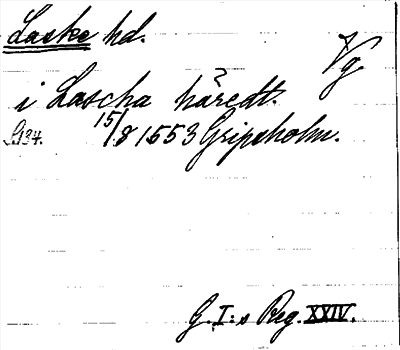 Laske hd.
Vg
i Lascha häredt.
15/8 1553 Gripsholm.
G. I:s Reg. XXIV.